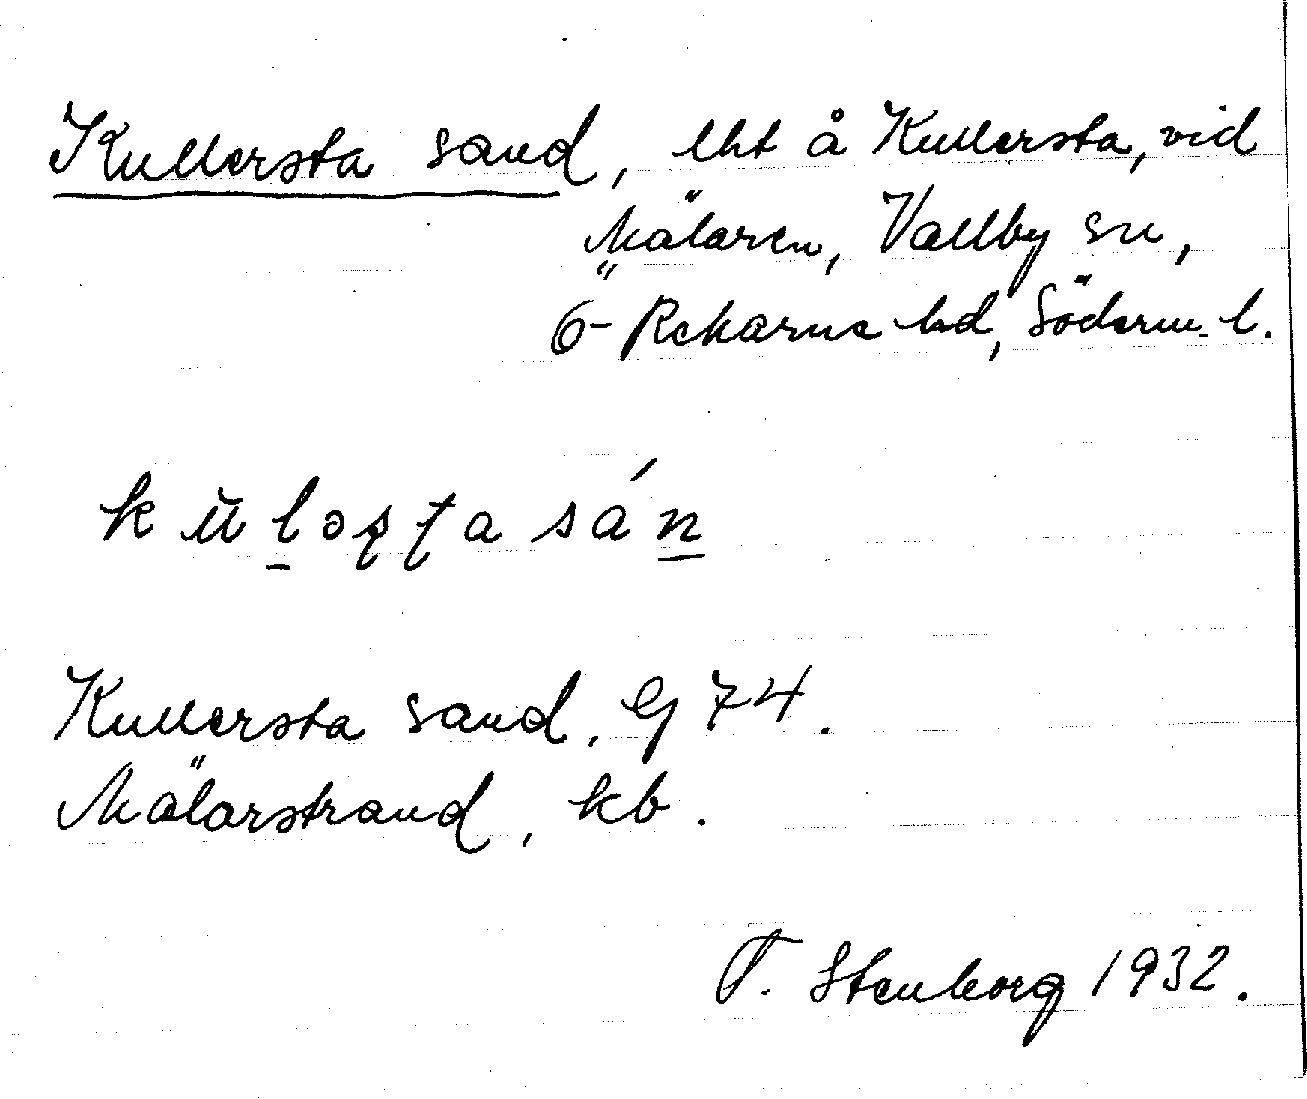 Kullersta sand, lht å Kullersta, vid
Mälaren, Vallby sn,
Ö-Rekarne hd, Söderm. l.
kŭḻəʂʈa sáṉ
Kullersta sand, G 74.
Mälarstrand, kb.
T. Stenborg 1932.